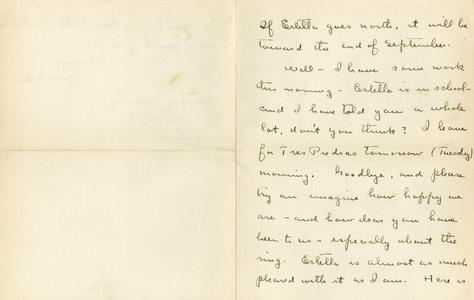 If Estella goes north, it will be
toward the end of September.
Well - I have some work
this morning - Estella is in school -
and I have told you a whole
lot, don't you think? I leave
for Tres Piedras tomorrow (Tuesday)
morning. Goodbye, and please
try an imagine how happy we
are - and how dear you have
been to us - especially about the
ring. Estella is almost as much
pleased with it as I am. Here is